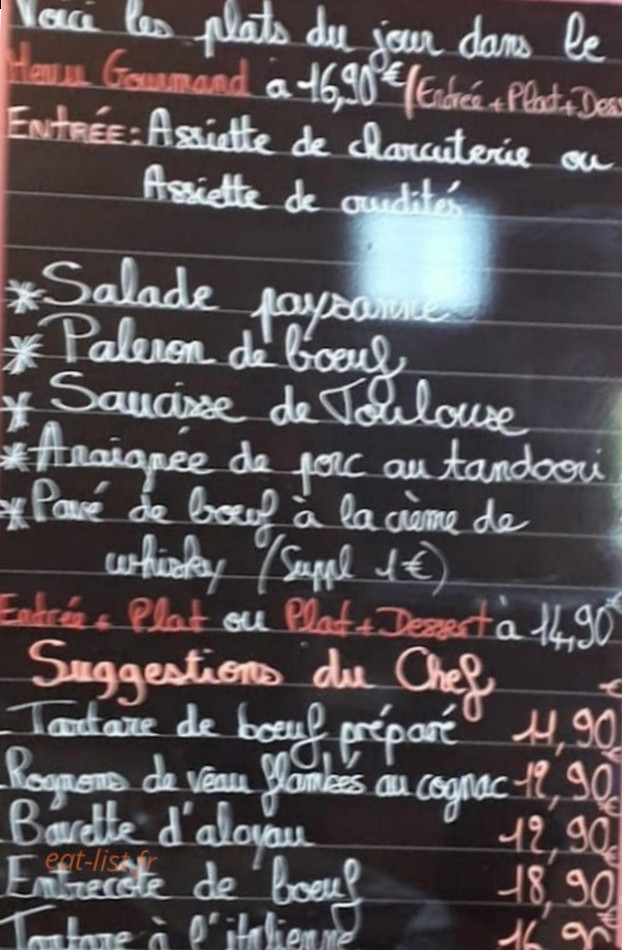 Voici les plats du jour dans le
Menu Gourmand à 16,90€ (Entrée + Plat + Dess
ENTRÉE: Assiette de charcuterie ou
Assiette de crudités
* Salade paysanne
* Paleron de boeuf
* Saucisse de Toulouse
* Araignée de porc au tandoori
* Pavé de boeuf à la crème de
whisky (Suppl 1€)
Entrée + Plat ou Plat + Dessert à 14,90€
Suggestions du Chef
€
Tartare de boeuf préparé 11,90
Rognons de veau flambés au cognac 12,90€
Bavette d'aloyau 12,90€
eat-list.fr
Entrecôte de boeuf 18,90€
Tartare à l'italienne 16,90